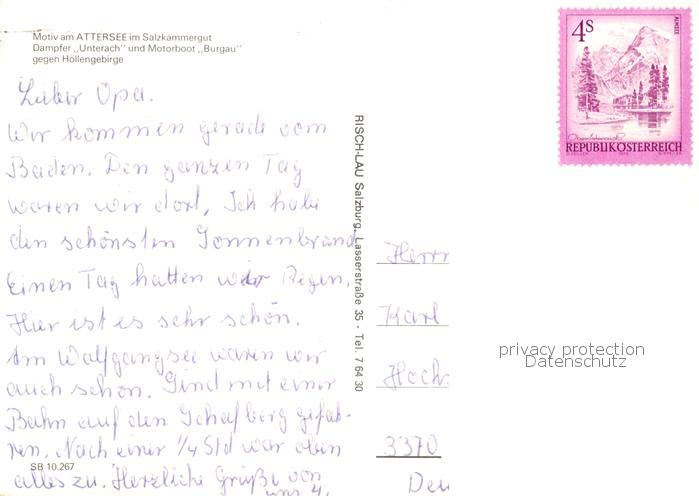 Motiv am ATTERSEE im Salzkammergut
Dampfer ,,Unterach" und Motorboot ,,Burgau"
gegen Höllengebirge
Lieber Opa.
Wir kommen gerade vom
Baden. Den ganzen Tag
waren wir dort, Ich habe
den schönsten Sonnenbrand
Einen Tag hatten wir Regen.
Hier ist es sehr schön.
Am Wolfgangsee waren wir
auch schon. Sind mit einer
Bahn auf den Schafberg gefah-
ren. Nach einer 1/4 Std war oben
alles zu. Herzliche Grüße von
uns 4.
SB 10.267
RISCH-LAU Salzburg, Lasserstraße 35 - Tel. 7 64 30
4S
ALMSEE
REPUBLIK ÖSTERREICH
Herrn
Karl
Hoch
3370
Deu
privacy protection
Datenschutz